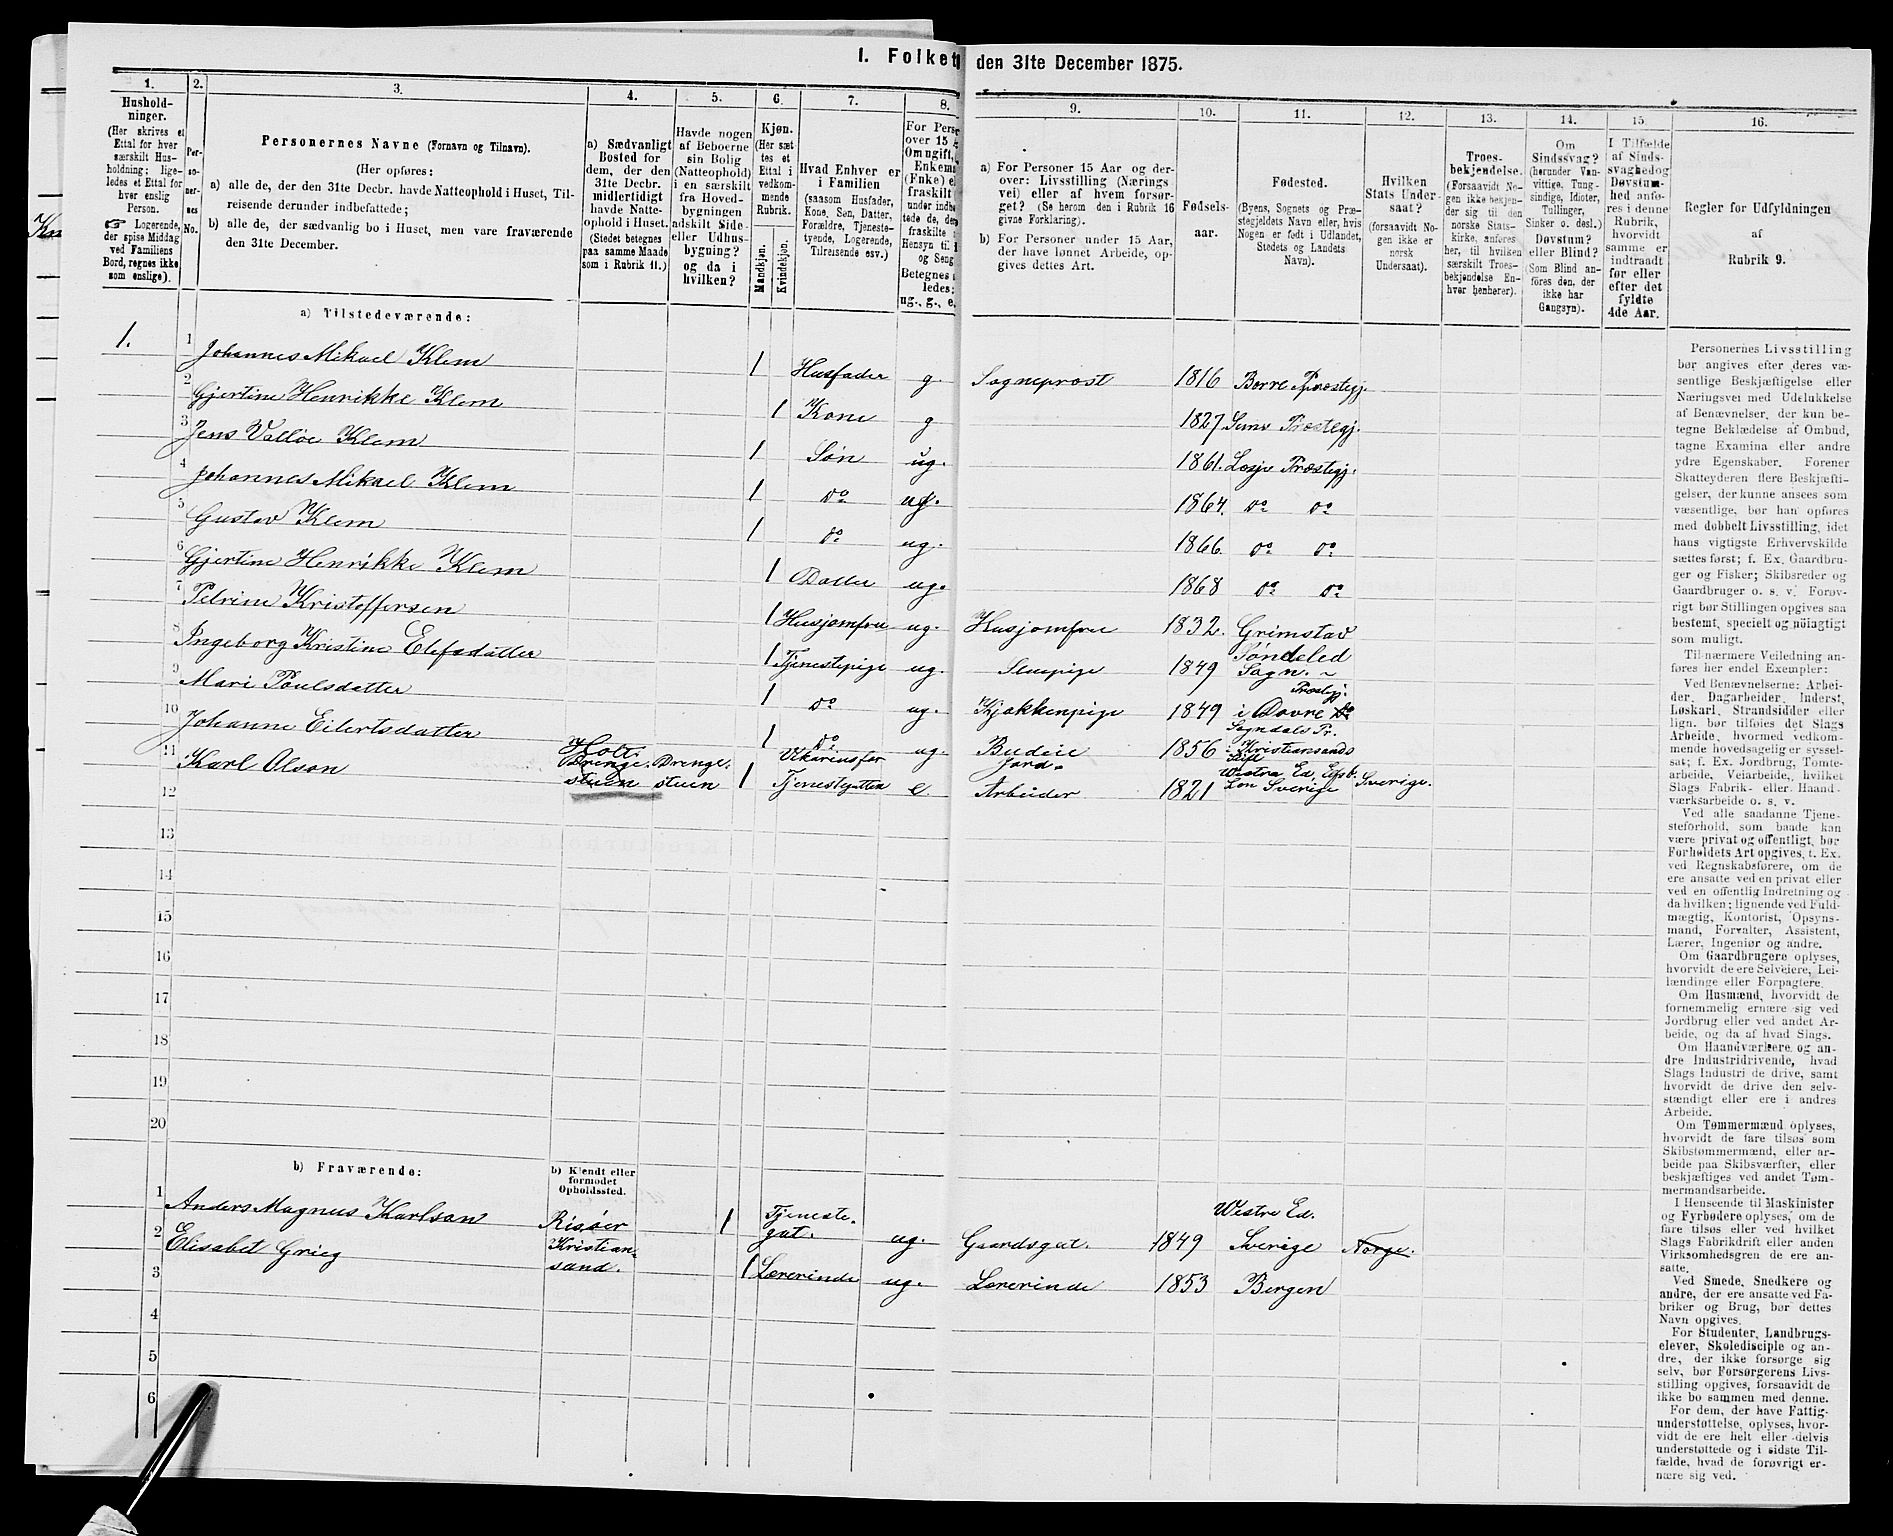 I. Folket
den 31te December 1875.
1.
2.
3.
4.
5.
6.
7.
8.
9.
10.
11.
12.
13.
14.
15.
16.
Hushold-
ninger.
(Her skrives et
Ettal for hver
særskilt Hus-
holdning; lige-
ledes et Ettal for
hver enslig
Person.
Logerende,
der spise Middag
ved Familiens
Bord, regnes ikke
som enslige).
Per-
so-
ner-
nes
No.
Personernes Navne (Fornavn og Tilnavn).
(Her opføres:
a) alle de, der den 31te Decbr. havde Natteophold i Huset, Til-
reisende derunder indbefattede;
b) alle de, der sædvanlig bo i Huset, men vare fraværende
den 31te December.
a) Sædvanligt
Bosted for
dem, der den
31te Decbr.
midlertidigt
havde Natte-
ophold i Huset.
(Stedet betegnes
paa samme Maade
som i Rubrik 11.)
Havde nogen
af Beboerne
sin Bolig
(Natteophold)
i en særskilt
fra Hoved-
bygningen
adskilt Side-
eller Udhus-
bygning?
og da i
hvilken?
Kjøn.
(Her sæt-
tes et
Ettal i
vedkom-
mende
Rubrik.
Mandkjøn.
Kvindekjøn.
Hvad Enhver er
i Familien
(saasom Husfader,
Kone, Søn, Datter,
Forældre, Tjeneste-
tyende, Logerende,
Tilreisende osv.)
For Perso
over 15
Om ugift,
Enkem
(Fnke) e
fraskilt
under indbe
tede de, der
fraskilte
Hensyn til
og Seng
Betegnes
ledes:
ug., g., e.
a) For Personer 15 Aar og der-
over: Livsstilling (Nærings-
vei) eller af hvem forsør-
get? (Se herom den i Rubrik 16
givne Forklaring).
b) For Personer under 15 Aar,
der have lønnet Arbeide, op-
gives dettes Art.
Fødsels-
aar.
Fødested.
(Byens, Sognets og Præ-
stegjeldets Navn eller, hvis
Nogen er født i Udlandet,
Stedets og Landets
Navn).
Hvilken
Stats Under-
saat?
(forsaavidt No-
gen ikke er
norsk
Undersaat).
Troes-
bekjendelse.
(Forsaavidt No-
gen ikke bekjen-
der sig til den
norske Stats-
kirke, anføres
her, til hvilken
særskilt Troes-
bekjendelse En-
hver henhører).
Om
Sindssvag?
(herunder Van-
vittige, Tung-
sindige, Idioter,
Tullinger,
Sinker o. desl.)
Døvstum?
eller Blind?
(Som Blind an-
føres den, der
ikke har
Gangsyn).
I Tilfælde
af Sinds-
svaghed og
Døvstum-
hed anfø-
res i denne
Rubrik,
hvorvidt
samme er
indtraadt
før eller
efter det
fyldte
4de Aar.
Regler for Udfyldningen
af
Rubrik 9.
a) Tilstedeværende:
1. 1 Johannes Mikael Klem 1 Husfader g. Sogneprost 1816 Borre Præstegj.
2 Gjertine Henrikke Klem 1 Kone g 1827 Præstegj.
3 Jens Valløe Klem 1 Søn ug. 1861. Lesje Præstegj.
4 Johannes Mikael Klem 1 do ug. 1864. do do
5 Gustav Klem 1 do ug. 1866. do do
6 Gjertine Henrikke Klem 1 Datter ug. 1868 do do
7 Petrine Kristoffersen 1 Husjomfru ug. Husjomfru 1832. Grimstad
8 Ingeborg Kristine Elefsdatter 1 Tjenestepige ug. Stuepige 1849 Søndeled
Sogn.
9 Mari Poulsdatter 1 do ug. Kjøkkenpige 1849 Præstegj.
i Dovre
10 Johanne Eilertsdatter 1 do ug. Budeie 1856 Sogndals Pr.
Kristiansands
Stift
11 Karl Olson Holt: Drenge-
stuen Drenge-
stuen 1 Vikarius for
Tjenestegutten e. Jord-
Arbeider 1821 Westra Ed,
Sverige Sverige.
12
13
14
15
16
17
18
19
20
b) Fraværende:
b) Kjendt eller
formodet
Opholdssted.
1 Anders Magnus Karlson Risøer 1 Tjeneste-
gut. ug. Gaardsgut. 1849 Westre Ed.
Sverige Norge.
2 Elisabet Grieg Kristian-
sand. 1 Lærerinde ug. Lærerinde 1853 Bergen
3
4
5
6
Personernes Livsstilling
bør angives efter deres væ-
sentlige Beskjæftigelse eller
Næringsvei med Udelukkelse
af Benævnelser, der kun be-
tegne Beklædelse af Ombud,
tagne Examina eller andre
ydre Egenskaber. Forener
Skatteyderen flere Beskjæfti-
gelser, der kunne ansees som
væsentlige, bør han opføres
med dobbelt Livsstilling, idet
hans vigtigste Erhvervskilde
sættes først; f. Ex. Gaardbru-
ger og Fisker; Skibsreder og
Gaardbruger o. s. v. Forøv-
rigt bør Stillingen opgives saa
bestemt, specielt og nöiagtigt
som muligt.
Til nærmere Veiledning an-
føres her endel Exempler:
Ved Benævnelserne: Arbei-
der, Dagarbeider, Inderst,
Løskarl, Strandsidder eller
lign. bør tilføies det Slags
Arbeide, hvormed vedkom-
mende hovedsagelig er syssel-
sat; f. Ex. Jordbrug, Tomte-
arbeide, Veiarbeide, hvilket
Slags Fabrik- eller Haand-
værksarbeide o. s. v.
Ved alle saadanne Tjene-
steforhold, som baade kan
være privat og offentligt, bør
Forholdets Art opgives, t. Ex.
ved Regnskabsførere, om de
ere ansatte ved en privat eller
ved en offentlig Indretning og
da hvilken; lignende ved Fuld-
mægtig, Kontorist, Opsyns-
mand, Forvalter, Assistent,
Lærer, Ingeniør og andre.
Om Gaardbrugere oplyses,
hvorvidt de ere Selveiere, Lei-
lændinge eller Forpagtere.
Om Husmænd, hvorvidt de
fornemmelig ernære sig ved
Jordbrug eller ved andet Ar-
beide, og da af hvad Slags.
Om Haandværkere og an-
dre Industridrivende, hvad
Slags Industri de drive, samt
hvorvidt de drive den selv-
stændigt eller ere i andres
Arbeide.
Om Tømmermænd oplyses,
hvorvidt de fare tilsøs som
Skibstømmermænd, eller ar-
beide paa Skibsværfter, eller
beskjæftiges ved andet Tøm-
mermandsarbeide.
I Henseende til Maskinister
og Fyrbødere oplyses, om de
fare tilsøs eller ved hvilket
Slags Fabrikdrift eller anden
Virksomhedsgren de ere an-
satte.
Ved Smede, Snedkere og
andre, der ere ansatte ved Fa-
briker og Brug, bør dettes
Navn opgives.
For Studenter, Landbrugs-
elever, Skoledisciple og an-
dre, der ikke forsørge sig
selv, bør Forsørgerens Livs-
stilling opgives, forsaavidt de
ikke bo sammen med denne.
For dem, der have Fattig-
understøttelse, oplyses, hvor-
vidt de ere helt eller delvis
understøttede og i sidste Til-
fælde, hvad de forøvrigt er-
nære sig ved.